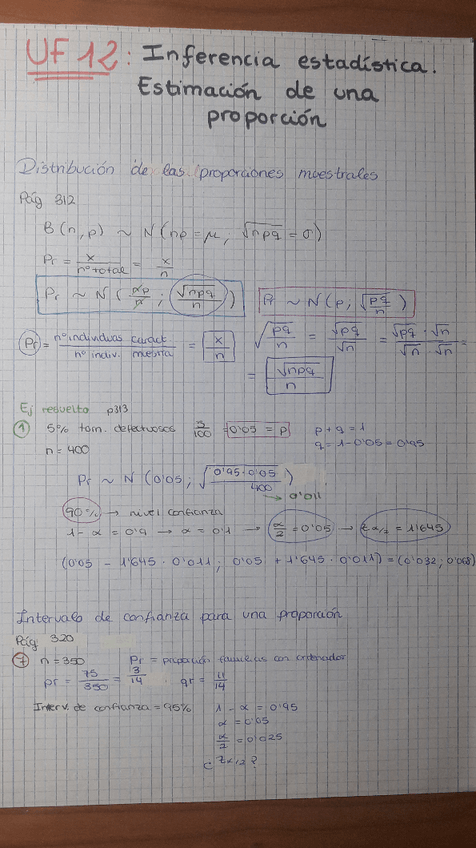 UF 12: Inferencia estadística.
Estimación de una
proporción
Distribución de las proporciones muestrales
Pág 312
B(n,p) ~ N(np = μ; √npq = σ)
Pr = x/nº total = x/n
Pr ~ N(np/n; √npq/n) Pr ~ N(p, √(pq/n))
Pr = nº individuos caract./nº indiv. muestra = x/n √(pq/n) = √pq/√n = √pq · √n/√n · √n =
= √npq/n
Ej resuelto p313
1 5% tam. defectuosos 5/100 = 0'05 = p p + q = 1
n = 400 q = 1 - 0'05 = 0'95
Pr ~ N(0'05; √(0'95·0'05/400))
→ 0'011
90% → nivel confianza
1 - α = 0'9 → α = 0'1 → α/2 = 0'05 → zα/2 = 1'645
(0'05 - 1'645 · 0'011; 0'05 + 1'645 · 0'011) = (0'032; 0'068)
Intervalo de confianza para una proporción
Pág 320
7 n = 350 Pr = proporción familias con ordenador
pr = 75/350 = 3/14 qr = 11/14
Interv. de confianza = 95% 1 - α = 0'95
α = 0'05
α/2 = 0'025
¿ zα/2 ?